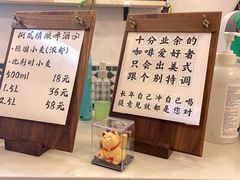 捌贰精酿啤酒店
·德国小麦(浓郁)
·比利时小麦
500ml 18元
1.5L 36元
2.5L 58元
十分业余的
咖啡爱好者
只会出美式
跟个别特调
长年自己冲自己喝
提意见就都是您对